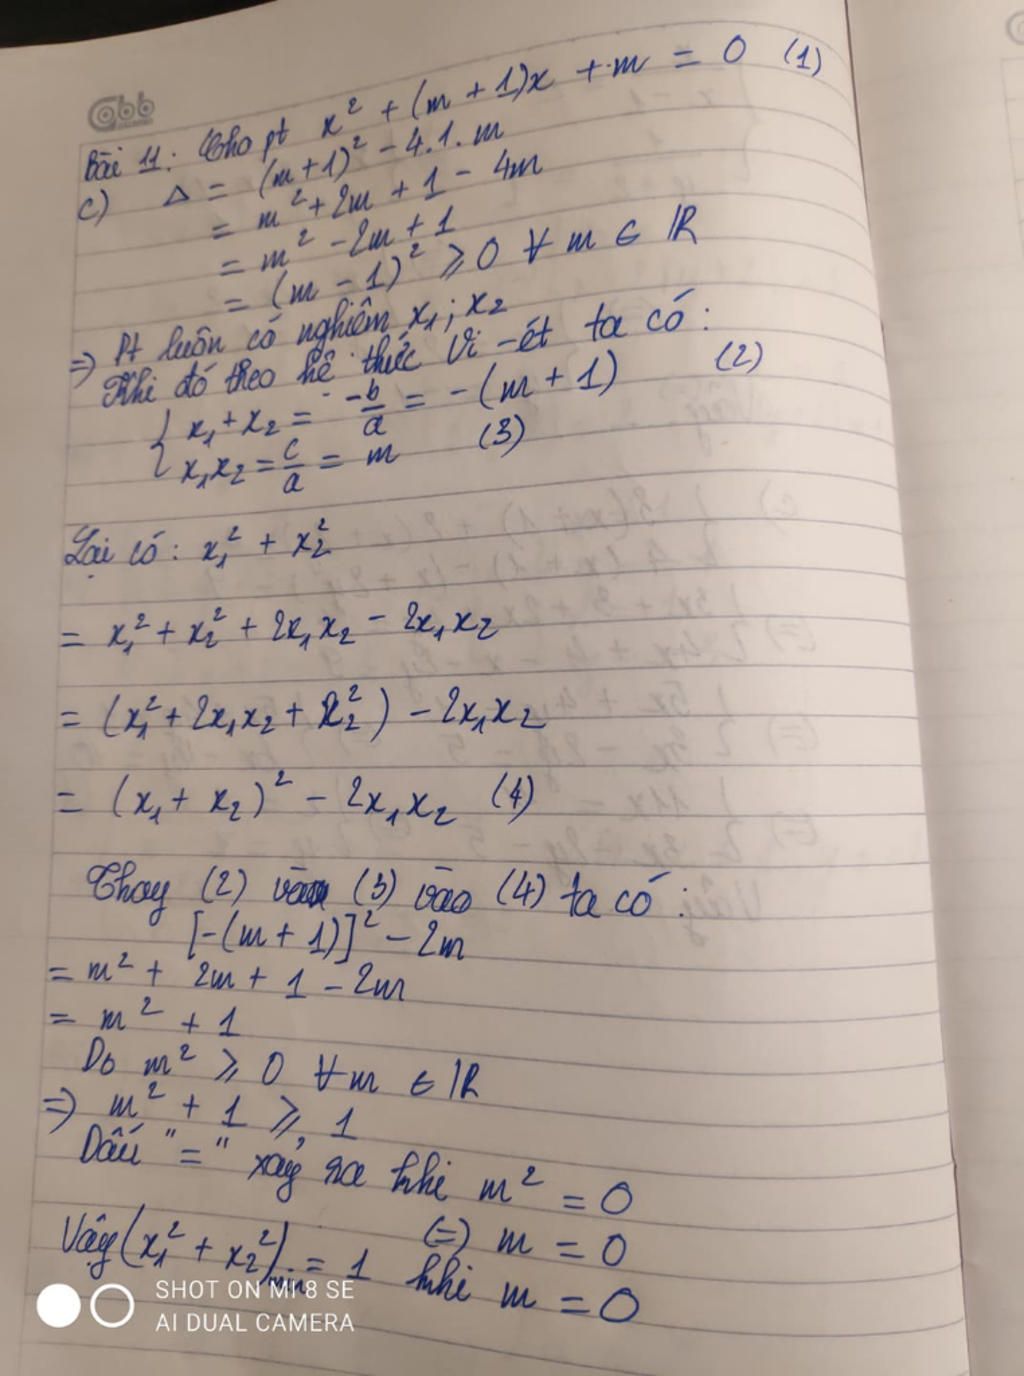 Cabb
Bài 11: Cho pt x² + (m + 1)x + m = 0 (1)
c) Δ = (m + 1)² - 4.1.m
= m² + 2m + 1 - 4m
= m² - 2m + 1
= (m - 1)² ⩾ 0 ∀ m ∈ ℝ
=> Pt luôn có nghiệm x₁; x₂
Khi đó theo hệ thức Vi-ét ta có:
{ x₁ + x₂ = -b/a = -(m + 1) (2)
x₁x₂ = c/a = m (3)
Lại có: x₁² + x₂²
= x₁² + x₂² + 2x₁x₂ - 2x₁x₂
= (x₁² + 2x₁x₂ + x₂²) - 2x₁x₂
= (x₁ + x₂)² - 2x₁x₂ (4)
Thay (2) và (3) vào (4) ta có:
[-(m + 1)]² - 2m
= m² + 2m + 1 - 2m
= m² + 1
Do m² ⩾ 0 ∀m ∈ ℝ
=> m² + 1 ⩾ 1
Dấu "=" xảy ra khi m² = 0
(=) m = 0
Vậy (x₁² + x₂²)min = 1 khi m = 0
SHOT ON MI 8 SE
AI DUAL CAMERA